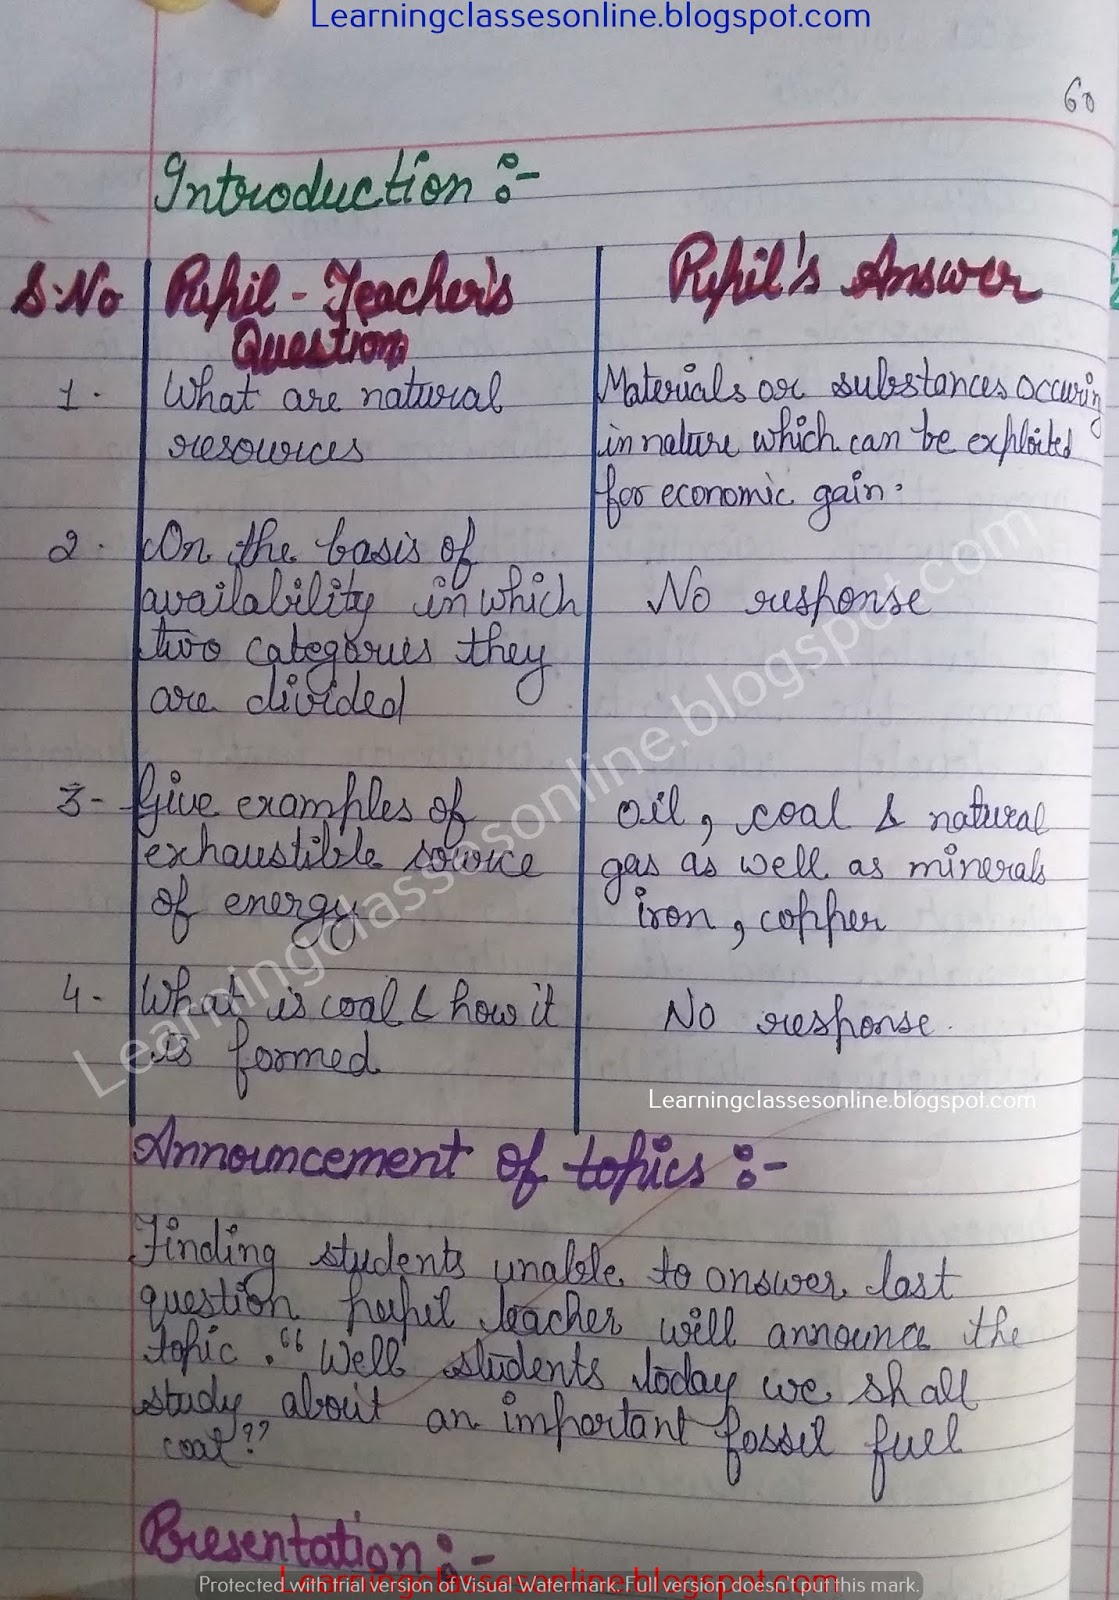 Learningclassesonline.blogspot.com
60
Introduction :-
S.No Pupil-Teacher's Question
Pupil's Answer
1. What are natural resources
Materials or substances occuring
in nature which can be exploited
for economic gain.
2. On the basis of
availability in which
two categories they
are divided
No response
3- Give examples of
exhaustible source
of energy
oil, coal & natural
gas as well as minerals
iron, copper
4- What is coal & how it
is formed
No response.
Learningclassesonline.blogspot.com
Learningclassesonline.blogspot.com
Announcement of topics :-
Finding students unable to answer last
question pupil teacher will announce the
topic. "Well students today we shall
study about an important fossil fuel
coal"
Presentation :-
Learningclassesonline.blogspot.com
Protected with trial version of Visual Watermark. Full version doesn't put this mark.